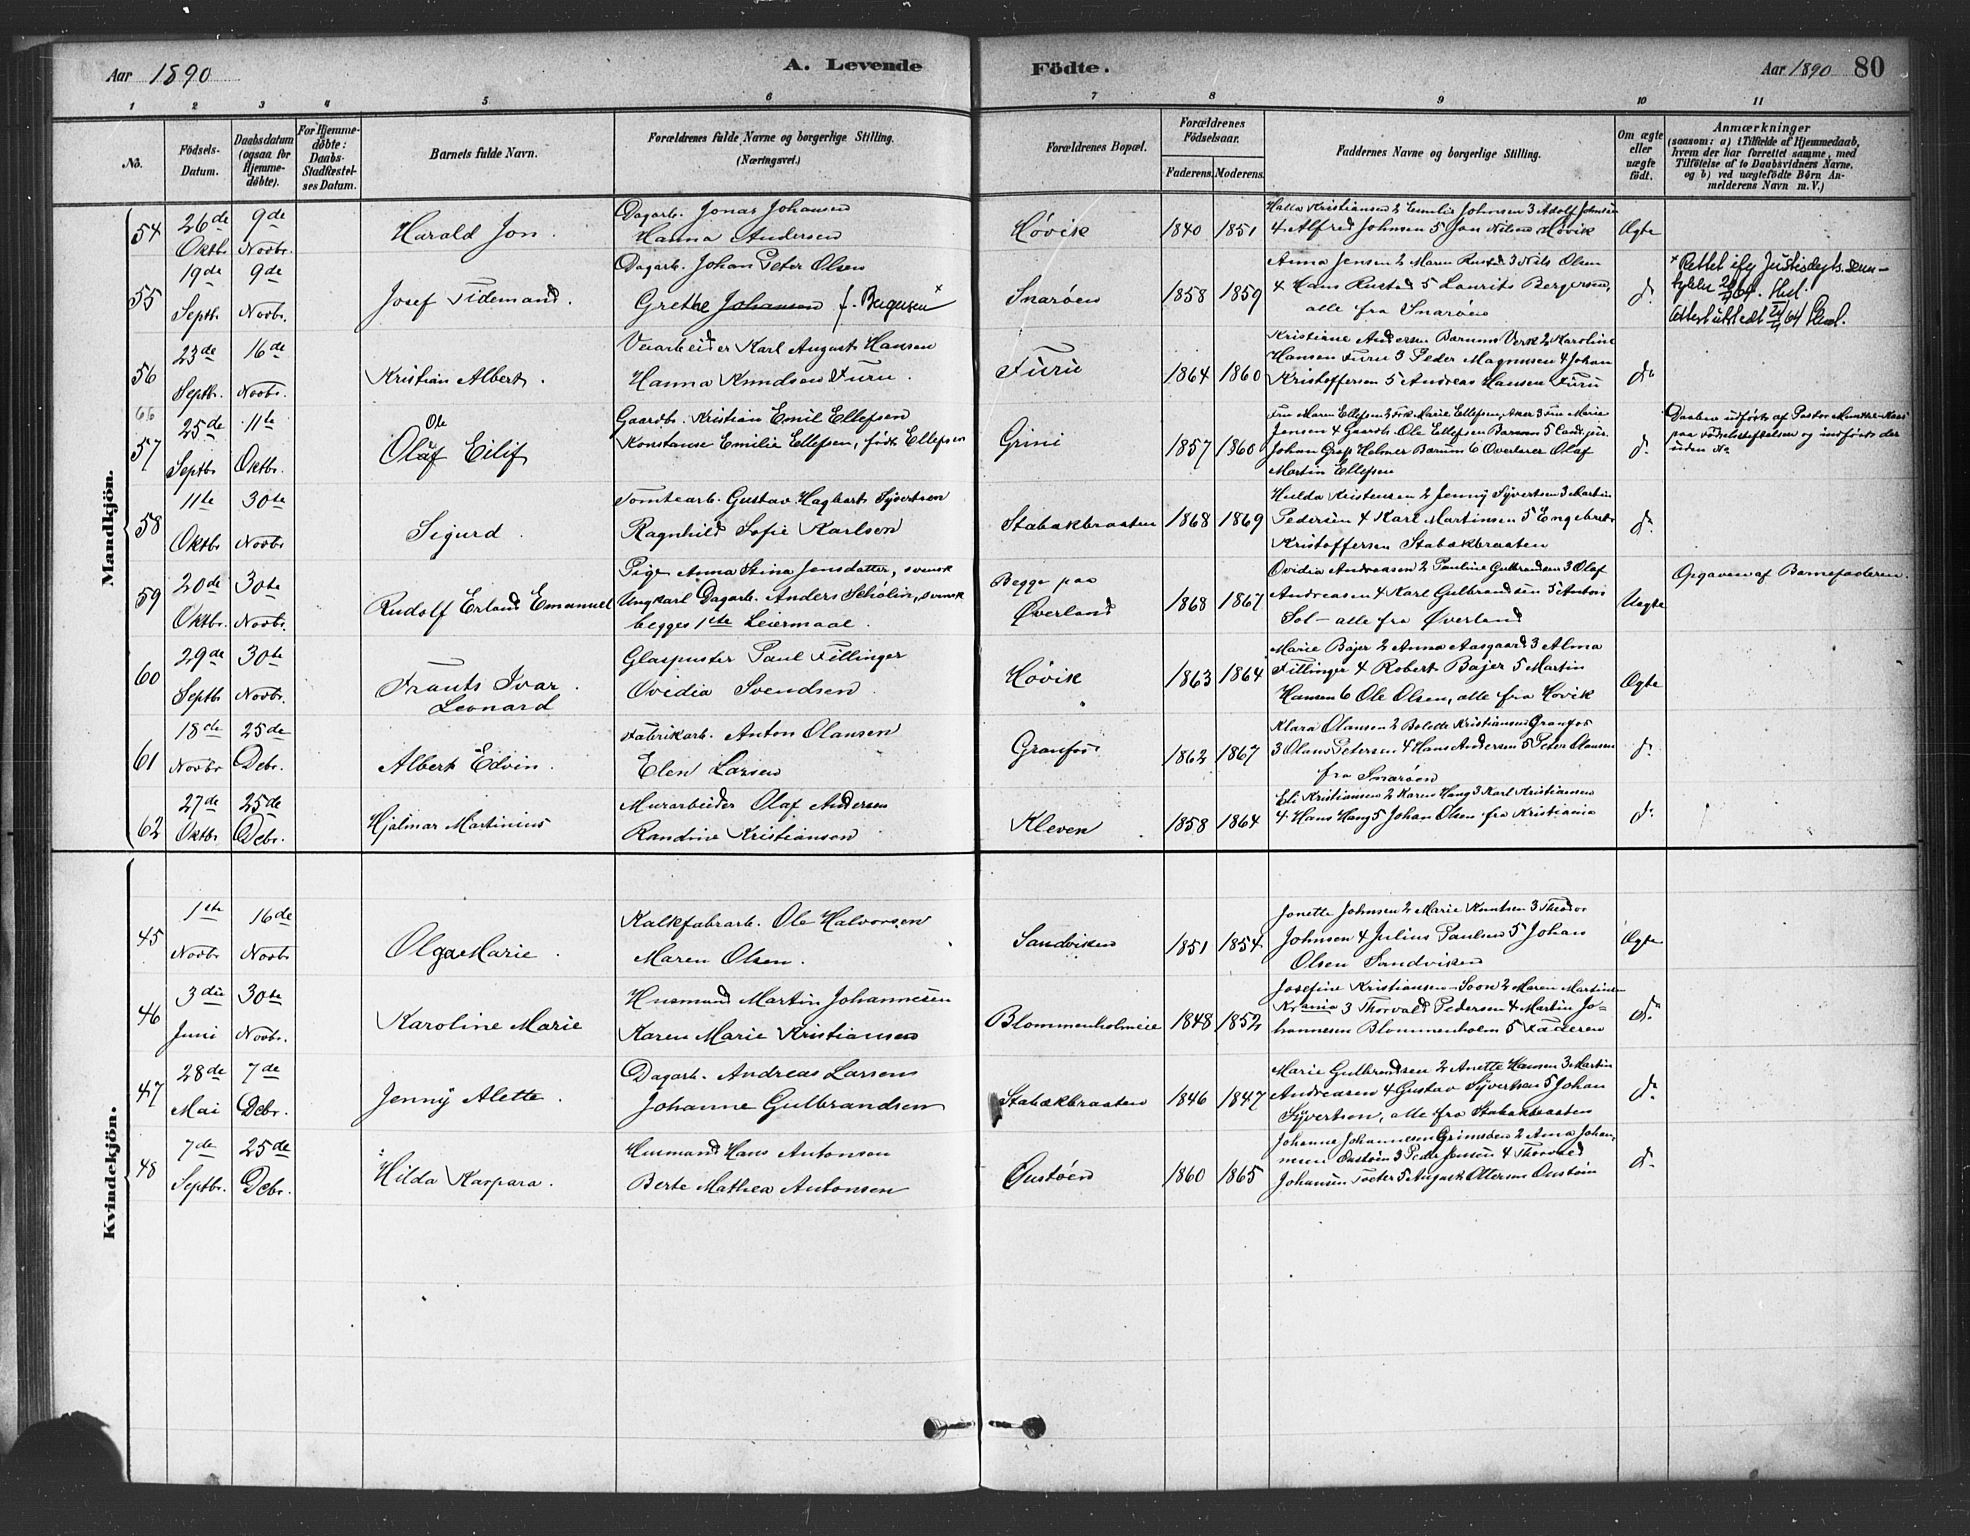 Aar 1890
A. Levende Fødte.
Aar 1890 80
1 2 3 4 5 6 7 8 9 10 11
No.
Fødsels-Datum.
Daabsdatum (ogsaa for Hjemmedøbte).
For Hjemmedøbte: Daabs-Stadfæstelses Datum.
Barnets fulde Navn.
Forældrenes fulde Navne og borgerlige Stilling.
(Næringsvei.)
Forældrenes Bopæl.
Forældrenes Fødselsaar.
Faderens. Moderens.
Faddernes Navne og borgerlige Stilling.
Om ægte eller uægte født.
Anmærkninger
(saasom: a) i Tilfælde af Hjemmedaab, hvem der har forrettet samme, med Tilføielse af to Daabsvidners Navne, og b) ved uægtefødte Børn Anmelderens Navn m. V.)
Mandkjøn.
54 26de Oktbr. 9de Novbr. Harald Jon.
Dagarb. Jonas Johansen
Hanna Andersen
Høvik 1840 1851
Kristiansen 2 Emilie Johnsen 3 Adolf Johnsen
4 Alfred Johnsen 5 Jon Nilsen Høvik
Ægte
55 19de Septbr. 9de Novbr. Josef Tidemand.
Dagarb. Johan Peter Olsen
Grethe Johansen f. Bergersen x
Snarøen 1858 1859
Anna Jensen 2 Maren Rustad 3 Nils Olsen
4 Hans Rustad 5 Laurits Bergersen,
alle fra Snarøen
do
x Rettet ifg Justisdepts.
Attest utstedt
56 23de Septbr. 16de Novbr. Kristian Albert.
Veiarbeider Karl August Hansen
Hanna Knudsen Furu.
Furu 1864 1860
Kristiane Andersen Bærums Verk 2 Karoline
Hansen Furu 3 Peder Magnusen 4 Johan
Kristoffersen 5 Andreas Hansen Furu
do
66
57 25de Septbr. 11te Oktbr. Ole
Olaf Eilif
Gaardb. Kristian Emil Ellefsen
Konstanse Emilie Ellefsen, født Ellefsen
Grini 1857 1860
Fru Maren Ellefsen 2 Frk. Marie Ellefsen, Aker 3 Fru Marie
Jensen 4 Gaardb. Ole Ellefsen Bærum 5 Cand. jur.
Johan Helmer Bærum 6 Overlærer Olaf
Martin Ellefsen
do
Daaben udført af Pastor Munthe-Kaas
paa Fødselsstiftelsen og indført der
uden No
58 11te Oktbr. 30te Novbr. Sigurd.
Tomtearb. Gustav Hagbart Syvertsen
Ragnhild Sofie Karlsen
Stabækbraaten 1868 1869
Hulda Kristensen 2 Jenny Syvertsen 3 Martin
Pedersen 4 Karl Martinsen 5 Engebret
Kristoffersen Stabækbraaten
do
59 20de Oktbr. 30te Novbr. Rudolf Erland Emanuel
Pige Anna Stina Jonsdatter, svensk
Ungkarl Dagarb. Anders Scholin, svensk
begges 1ste Leiermaal.
Begge paa
Øverland 1868 1867
Ovidia Andreasen 2 Pauline Gulbrandsen 3 Olaf
Andreasen 4 Karl Gulbrandsen 5 Anton
Sol - alle fra Øverland
Uægte
Opgaven af Barnefaderen.
60 29de Septbr. 30te Novbr. Frants Ivar
Leonard
Glaspuster Paul Fillinger
Ovidia Svendsen.
Høvik 1863 1864
Marie Bajer 2 Anna Aasgaard 3 Alma
Fillinger 4 Robert Bajer 5 Martin
Hansen 6 Ole Olsen, alle fra Høvik
Ægte
61 18de Novbr. 25de Debr. Albert Edvin.
Fabrikarb. Anton Olausen
Elen Larsen
Granfos 1862 1867
Klara Olausen 2 Bolette Kristiansen Granfos
3 Olaus Petersen 4 Hans Andersen 5 Peter Olausen
fra Snarøen
do
62 27de Oktbr. 25de Debr. Hjalmar Martinius
Murarbeider Olaf Andersen
Randine Kristiansen
Kleven 1858 1864
Eli Kristiansen 2 Karen Haug 3 Karl Kristiansen
4 Hans Haug 5 Johan Olsen fra Kristiania
do
Kvindekjøn.
45 1ste Novbr. 16de Novbr. Olga Marie.
Kalkfabrarb. Ole Halvorsen
Maren Olsen.
Sandviken 1851 1854
Jonette Johnsen 2 Marie Knutsen 3 Theodor
Johnsen 4 Julius Paulsen 5 Johan
Olsen Sandviken
Ægte
46 3die Juni 30te Novbr. Karoline Marie
Husmand Martin Johannesen
Karen Marie Kristiansen
Blommenholmeie 1848 1852
Josefine Kristiansen Soon 2 Maren Martinsen
Krania 3 Thorvald Pedersen 4 Martin Jo-
hannesen Blommenholm 5 Faderen
do
47 28de Mai 7de Debr. Jenny Alette.
Dagarb. Andreas Larsen
Johanne Gulbrandsen
Stabækbraaten 1846 1847
Marie Gulbrandsen 2 Anette Hansen 3 Martin
Andreasen 4 Gustav Syvertsen 5 Johan
Syvertsen, alle fra Stabækbraaten
do
48 7de Septbr. 25de Debr. Hilda Kaspara.
Husmand Hans Antonsen
Berte Mathea Antonsen
Oustøen 1860 1865
Johanne Johannesen Grimsøen 2 Anna Johan-
nesen Oustøen 3 Peder Jensen 4 Thorvald
Johansen 5 August Ottersen Oustøen
do